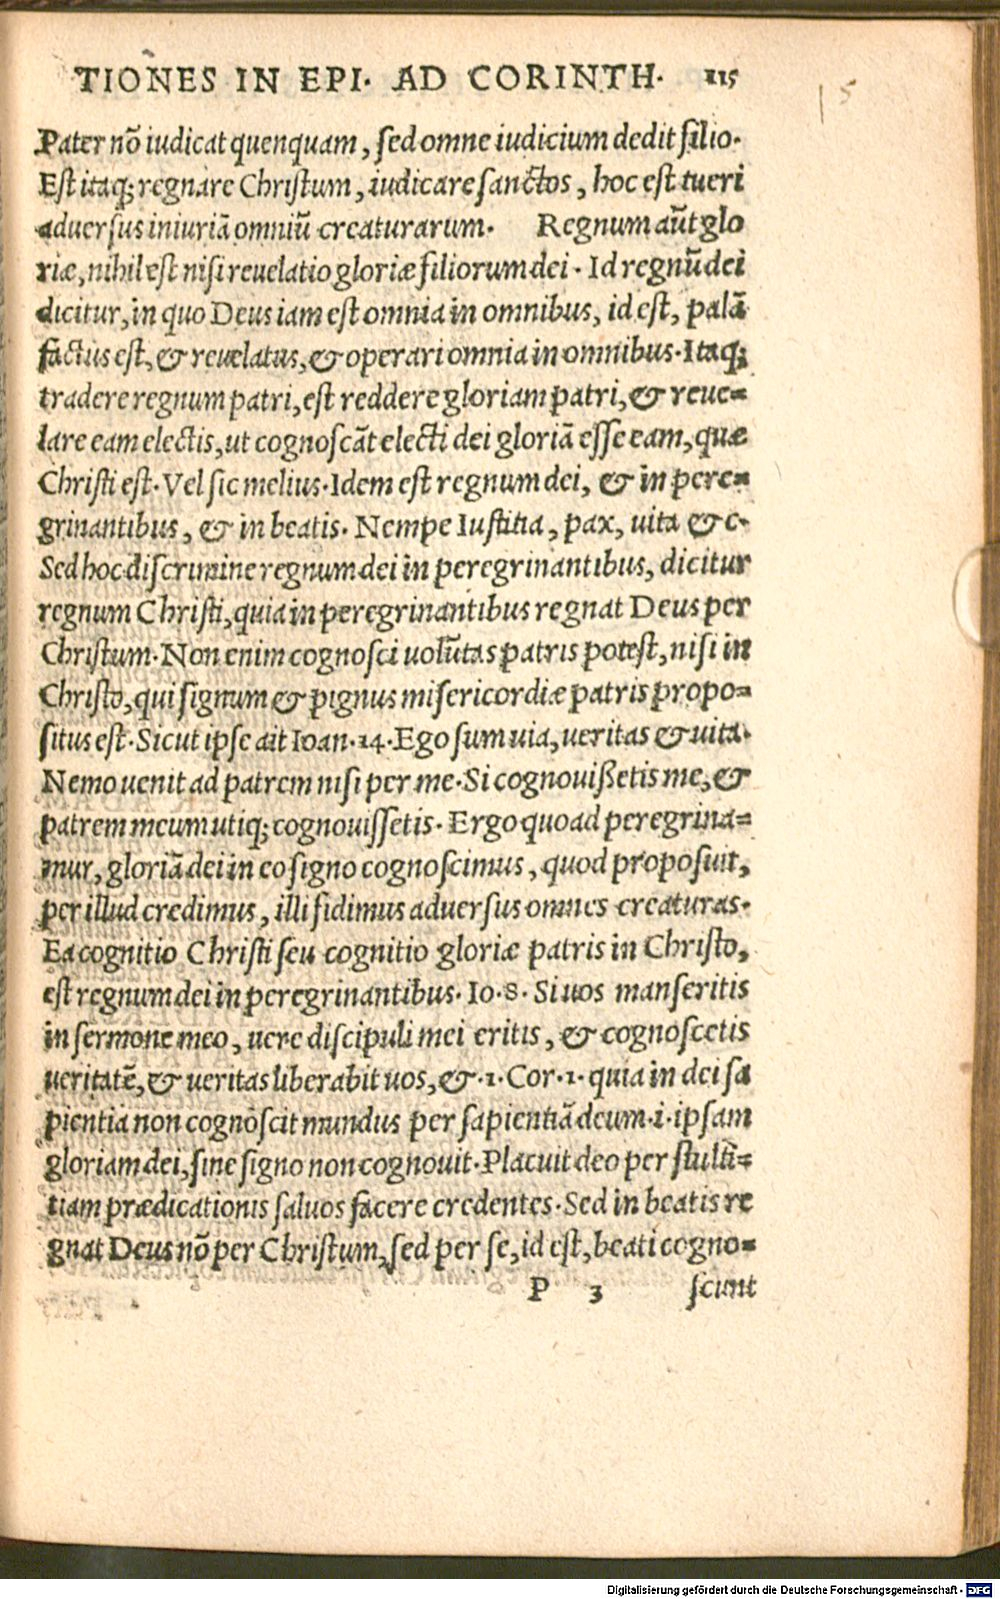 TIONES IN EPI. AD CORINTH. 115
15
Pater nõ iudicat quenquam, sed omne iudicium dedit filio.
Est itaq; regnare Christum, iudicare sanctos, hoc est tueri
aduersus iniuriã omniũ creaturarum. Regnum aũt glo
riæ, nihil est nisi reuelatio gloriæ filiorum dei. Id regnũ dei
dicitur, in quo Deus iam est omnia in omnibus, id est, palã
factus est, & reuelatus, & operari omnia in omnibus. Itaq;
tradere regnum patri, est reddere gloriam patri, & reue=
lare eam electis, ut cognoscãt electi dei gloriã esse eam, quæ
Christi est. Vel sic melius. Idem est regnum dei, & in pere=
grinantibus, & in beatis. Nempe Iustitia, pax, uita & c.
Sed hoc discrimine regnum dei in peregrinantibus, dicitur
regnum Christi, quia in peregrinantibus regnat Deus per
Christum. Non enim cognosci uolũtas patris potest, nisi in
Christo, qui signum & pignus misericordiæ patris propo=
situs est. Sicut ipse ait Ioan. 14. Ego sum uia, ueritas & uita.
Nemo uenit ad patrem nisi per me. Si cognouißetis me, &
patrem meum utiq; cognouissetis. Ergo quoad peregrina=
mur, gloriã dei in eo signo cognoscimus, quod proposuit,
per illud credimus, illi fidimus aduersus omnes creaturas.
Ea cognitio Christi seu cognitio gloriæ patris in Christo,
est regnum dei in peregrinantibus. Io. 8. Si uos manseritis
in sermone meo, uere discipuli mei eritis, & cognoscetis
ueritatẽ, & ueritas liberabit uos, &. 1. Cor. 1. quia in dei sa
pientia non cognoscit mundus per sapientiã deum. i. ipsam
gloriam dei, sine signo non cognouit. Placuit deo per stulti=
tiam prædicationis saluos facere credentes. Sed in beatis re
gnat Deus nõ per Christum, sed per se, id est, beati cogno=
P 3 scunt
Digitalisierung gefördert durch die Deutsche Forschungsgemeinschaft - DFG